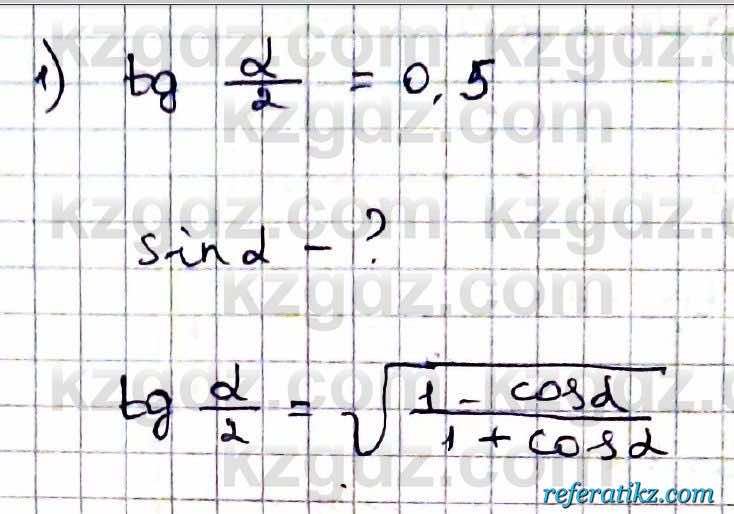 kzgdz.com kzgdz.com
1) tg α/2 = 0,5
kzgdz.com
kzgdz.com kzgdz.com
sin α - ?
kzgdz.com
kzgdz.com kzgdz.com
tg α/2 = √((1 - cos α)/(1 + cos α))
kzgdz.com
referatikz.com